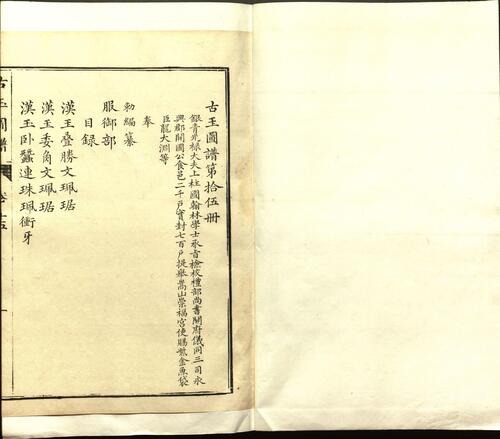 古玉圖譜第拾伍冊
銀青光祿大夫上柱國翰林學士承旨檢校禮部尚書開府儀同三司永
興郡開國公食邑二千戶實封七百戶提舉嵩山崇福宮使賜紫金魚袋
臣龍大淵等
奉
勅編纂
服御部
目録
漢玉疊勝文珮琚
漢玉委角文珮琚
漢玉卧蠶連珠珮衝牙
古玉圖譜
卷十五